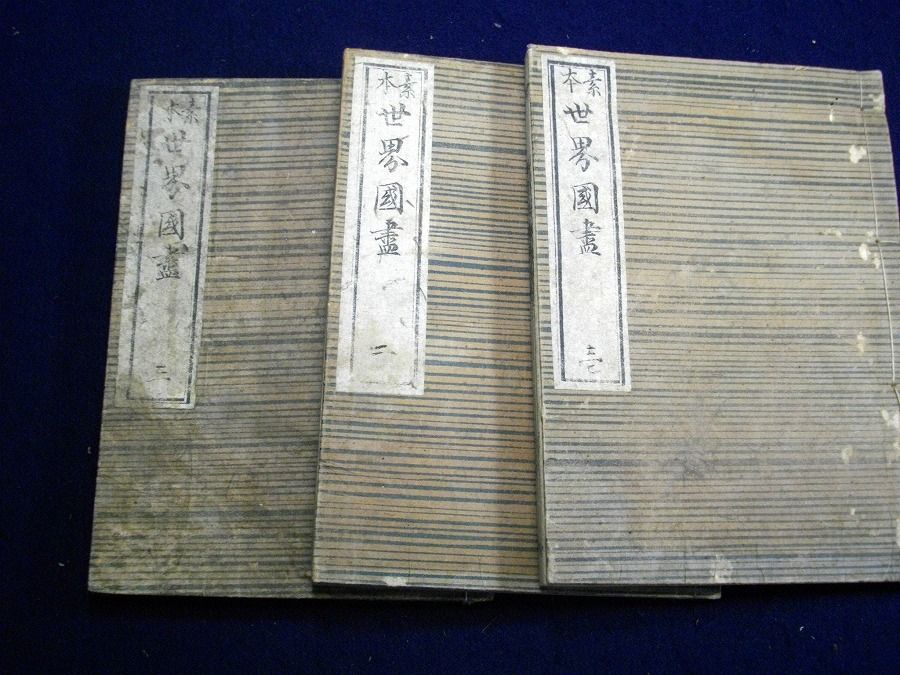 素本 世界國盡 壱
素本 世界國盡 二
素本 世界國盡 三